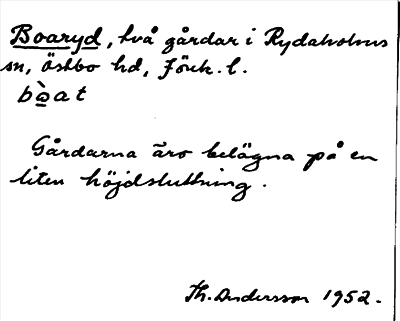 Boaryd, två gårdar i Rydaholms
sn, östbo hd, Jönk. l.
bòat
Gårdarna äro belägna på en
liten höjdsluttning.
Th. Andersson 1952.